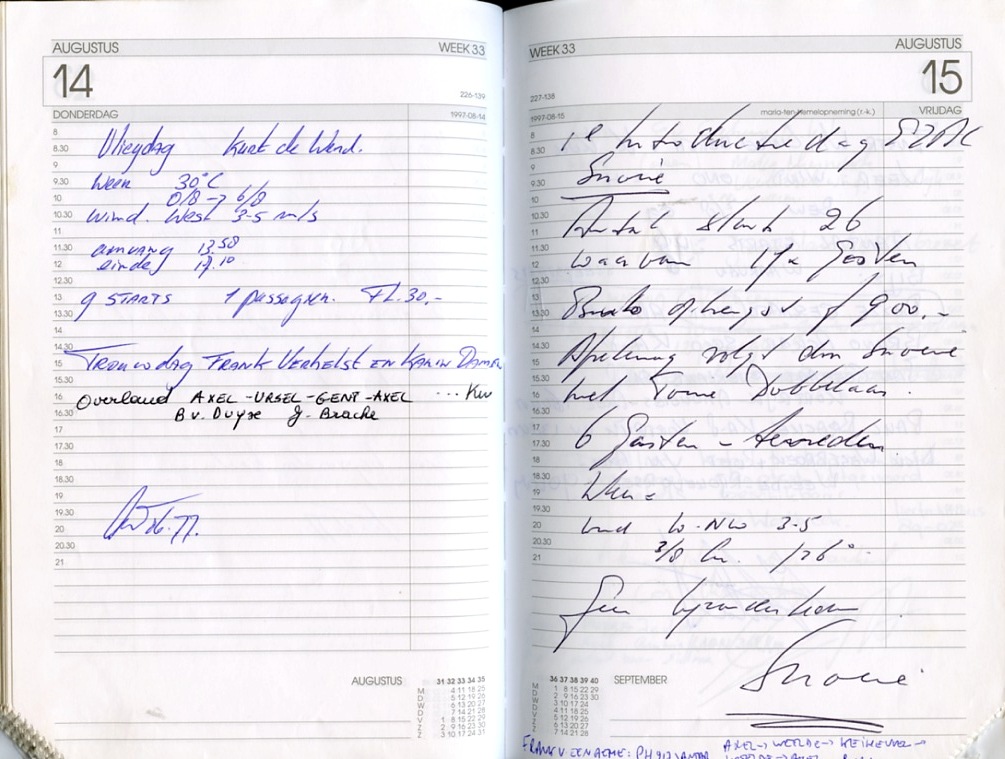 AUGUSTUS WEEK 33
14
226-139
DONDERDAG 1997-08-14
8
8.30 Vliegdag Kurt de Wend.
9
9.30 Weer 30°C
10 0/8 → 6/8
10.30 Wind. West 3-5 m/s
11
11.30 aanvang 13.58
12 einde 17.10
12.30
13 9 STARTS 1 passagier. FL.30,-
13.30
14
14.30
15 TROUWdag FRANK VERHELST EN KARIN
15.30
16 Overland AXEL-URSEL-GENT-AXEL ... Km
16.30 B v. Duyse J. Brache
17
17.30
18
18.30
19
19.30
20
20.30
21
AUGUSTUS
31 32 33 34 35
M 4 11 18 25
D 5 12 19 26
W 6 13 20 27
D 7 14 21 28
V 1 8 15 22 29
Z 2 9 16 23 30
Z 3 10 17 24 31
WEEK 33 AUGUSTUS
15
227-138
1997-08-15 maria-ten-hemelopneming (r.-k.) VRIJDAG
8
8.30 1e Introductiedag EZAC
9
9.30
10
10.30 Aantal starts 26
11
11.30 waarvan 17x Gasten
12
12.30
13 Bruto opbrengst f 900.-
13.30
14
14.30
15 volgt
15.30
16 met Dobbelaar.
16.30
17
17.30 6 Gasten -
18
18.30
19 Weer =
19.30
20 wind W-NW 3-5
20.30 3/8 Cu. /26°
21
Geen
SEPTEMBER
36 37 38 39 40
M 1 8 15 22 29
D 2 9 16 23 30
W 3 10 17 24
D 4 11 18 25
V 5 12 19 26
Z 6 13 20 27
Z 7 14 21 28
AXEL → WEELDE → KEIHEUVEL →